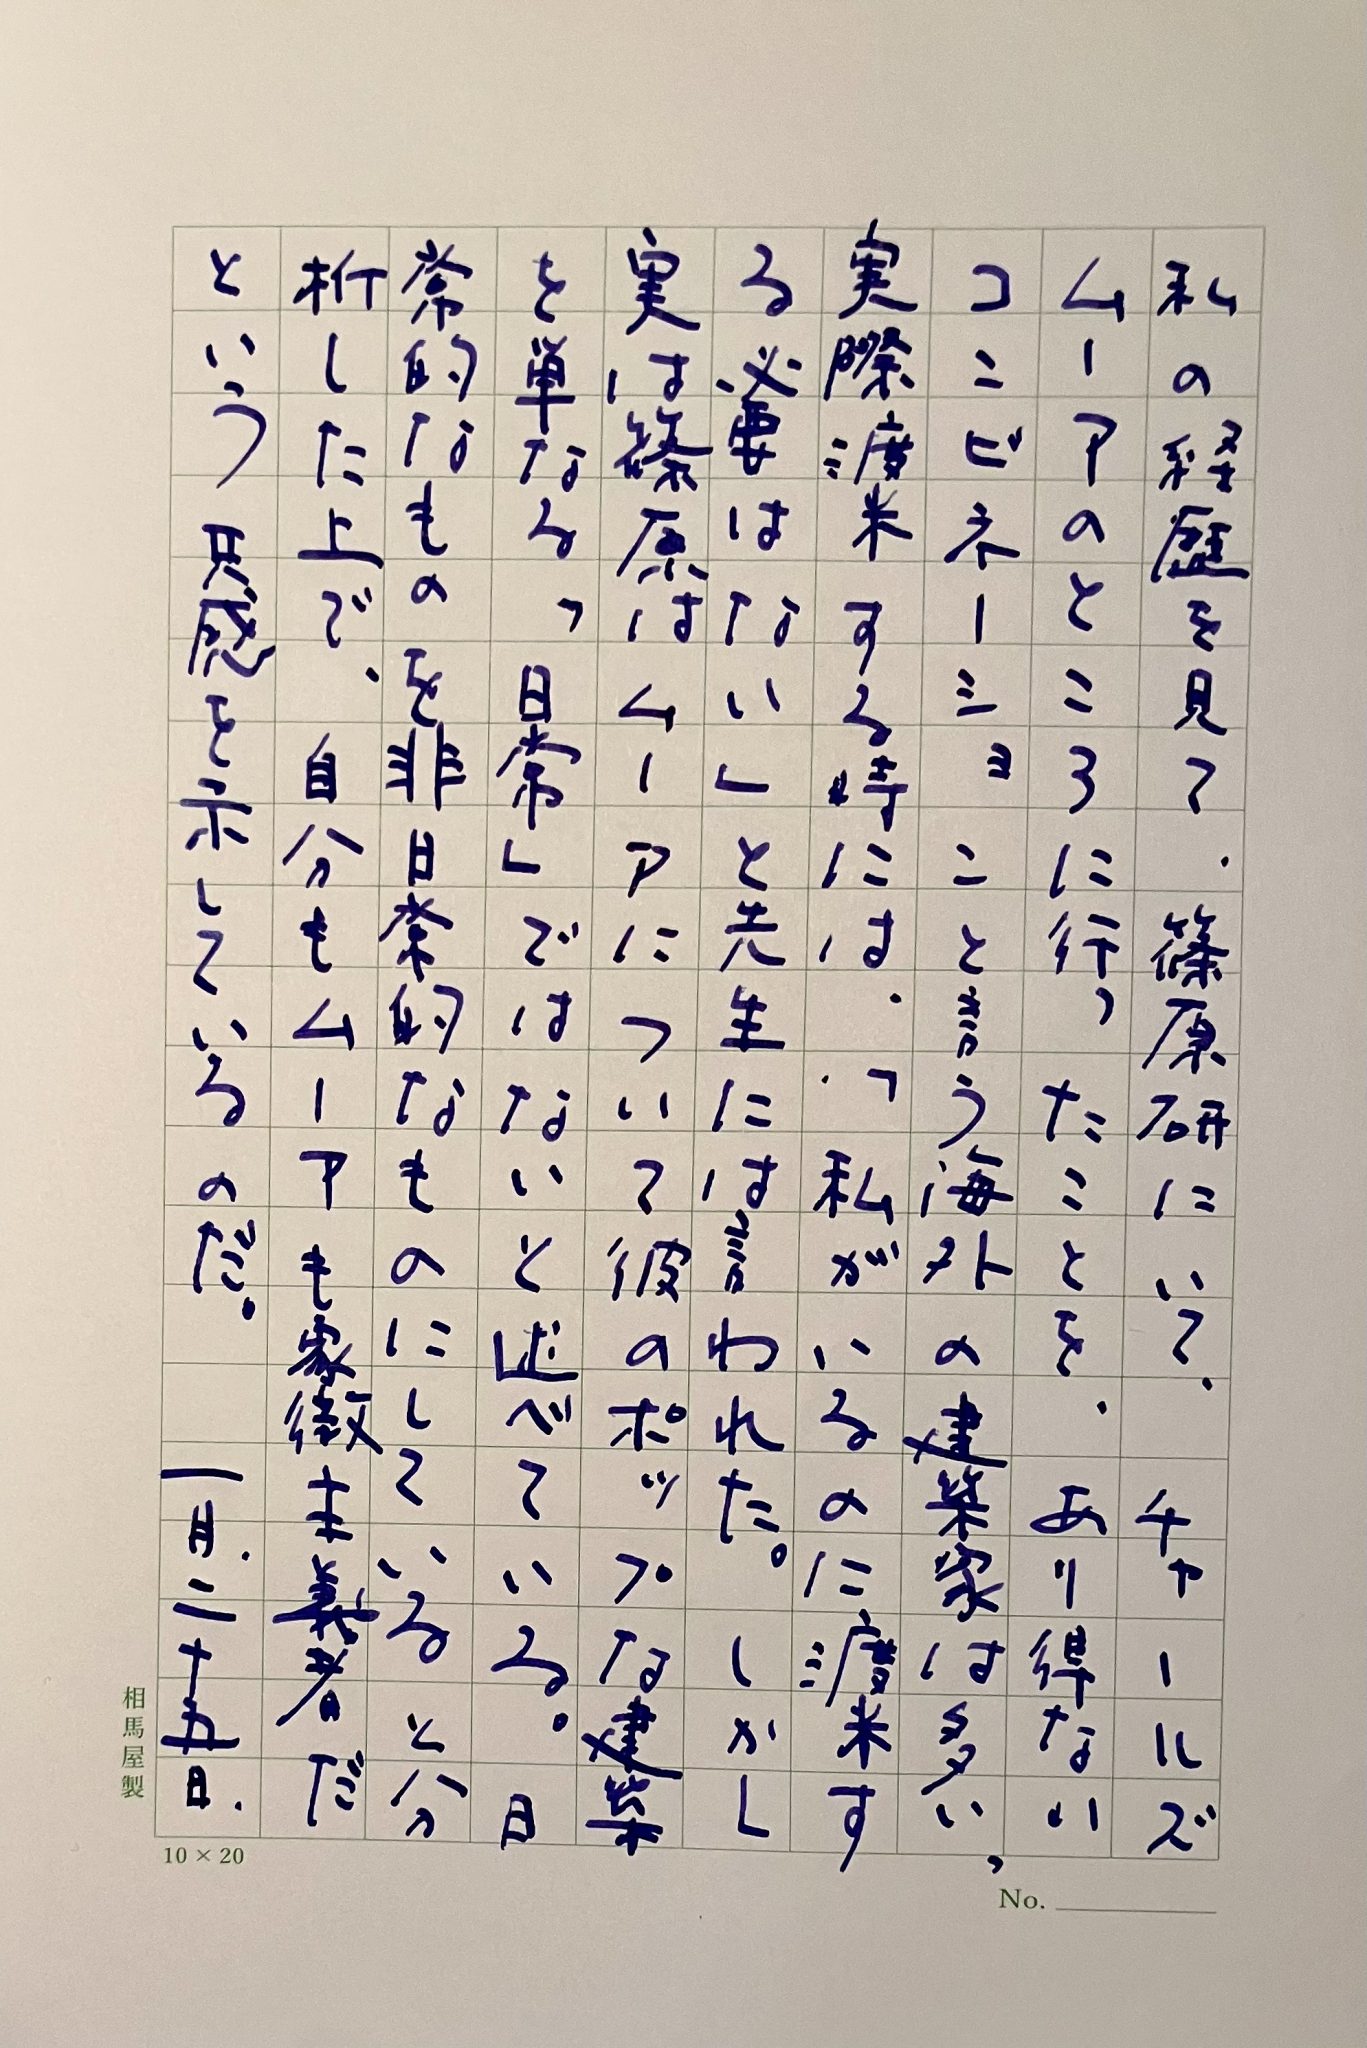 私の経歴を見て、篠原研にいて、チャールズ
ムーアのところに行ったことを、あり得ない
コンビネーションと言う海外の建築家は多い、
実際渡米する時には、「私がいるのに渡米す
る必要はない」と先生には言われた。しかし
実は篠原はムーアについて彼のポップな建築
を単なる「日常」ではないと述べている。日
常的なものを非日常的なものにしていると分
析した上で、自分もムーアも象徴主義者だ
という共感を示しているのだ。一月二十五日.
相馬屋製
10 × 20
No.